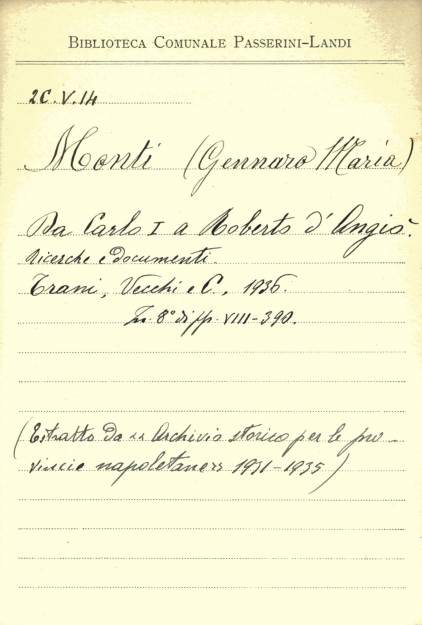 BIBLIOTECA COMUNALE PASSERINI-LANDI
2C.V.14
Monti (Gennaro Maria)
Da Carlo I a Roberto d'Angiò.
Ricerche e documenti.
Trani, Vecchi e C., 1936.
In 8° di pp. VIII-390.
(Estratto da "Archivio storico per le pro-
vincie napoletane" 1931-1935)